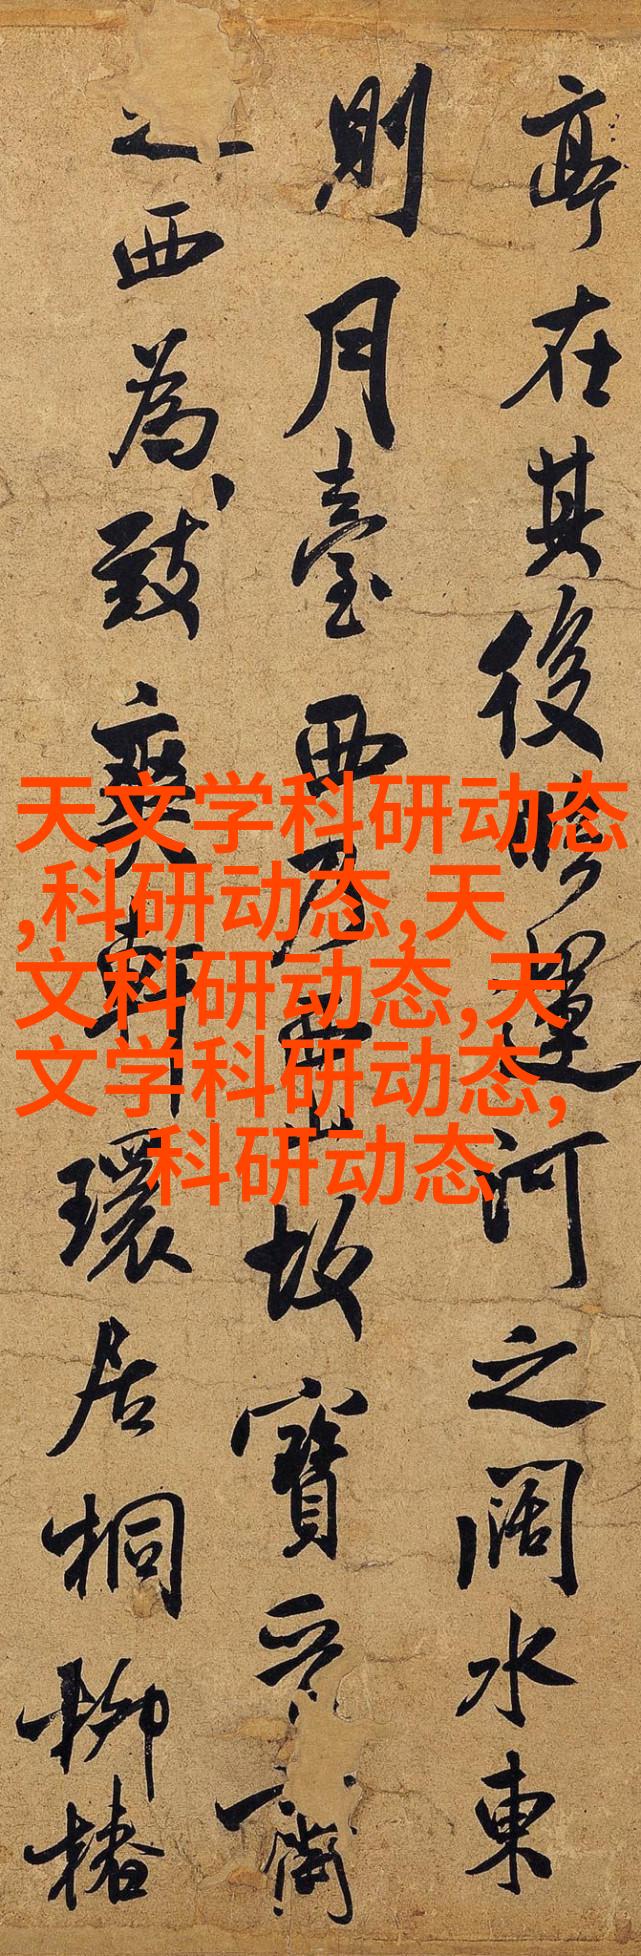 亭在其後瞰運河之闊水東
則月臺西乃故寶晉齋
之西為致爽軒環居桐柳椿
天文学科研动态
,科研动态,天
文科研动态,天
文学科研动态,
科研动态